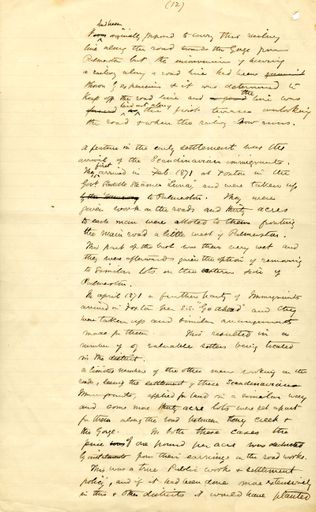 (12)
originally proposed to carry this railway
line along the road towards the Gorge from
Palmerston but the inconvenience of having
a railway along a road line had been
shown by experience & it was determined to
keep off the road line and the line was
laid out along the terrace overlooking
the road & where the railway now runs.
a feature in the early settlement was the
arrival of the Scandinavian immigrants.
They first arrived in Feby 1871 at Foxton in the
Govt Paddle Steamer Luna, and were taken up
to Palmerston. They were
given work on the roads and thirty acres
to each man were allotted to them fronting
the main road a little west of Palmerston.
This part of the block was then very wet and
they were afterwards given the option of removing
to similar lots on the eastern side of
Palmerston.
In April 1871 a further party of Immigrants
arrived in Foxton per S.S. "Go ahead" and they
were taken up and similar arrangements
made for them. This resulted in a
number of valuable settlers being located
in the district.
a limited number of the other men working on the
roads, seeing the settlement of these Scandinavian
Immigrants, applied for land in a similar way
and some more thirty acre lots were set apart
for them along the road between Stony Creek &
the Gorge. In both these cases the
price of one pound per acre was deducted
from their earnings on the road works.
This was a true Public works & settlement
policy, and if it had been done more extensively
in this & other districts it would have planted